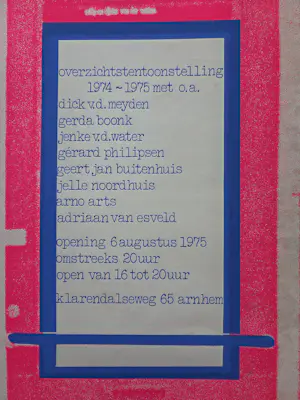 overzichtstentoonstelling
1974 ~ 1975 met o.a.
dick v.d. meyden
gerda boonk
jenke v.d. water
gérard philipsen
geert jan buitenhuis
jelle noordhuis
arno arts
adriaan van esveld
opening 6 augustus 1975
omstreeks 20 uur
open van 16 tot 20 uur
klarendalseweg 65 arnhem